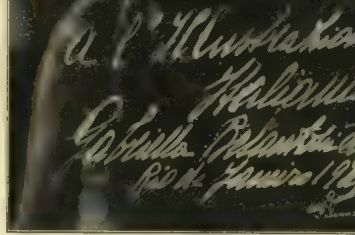 a l'Illustration
Italiana
Gabriella Besanzoni
Rio de Janeiro 19